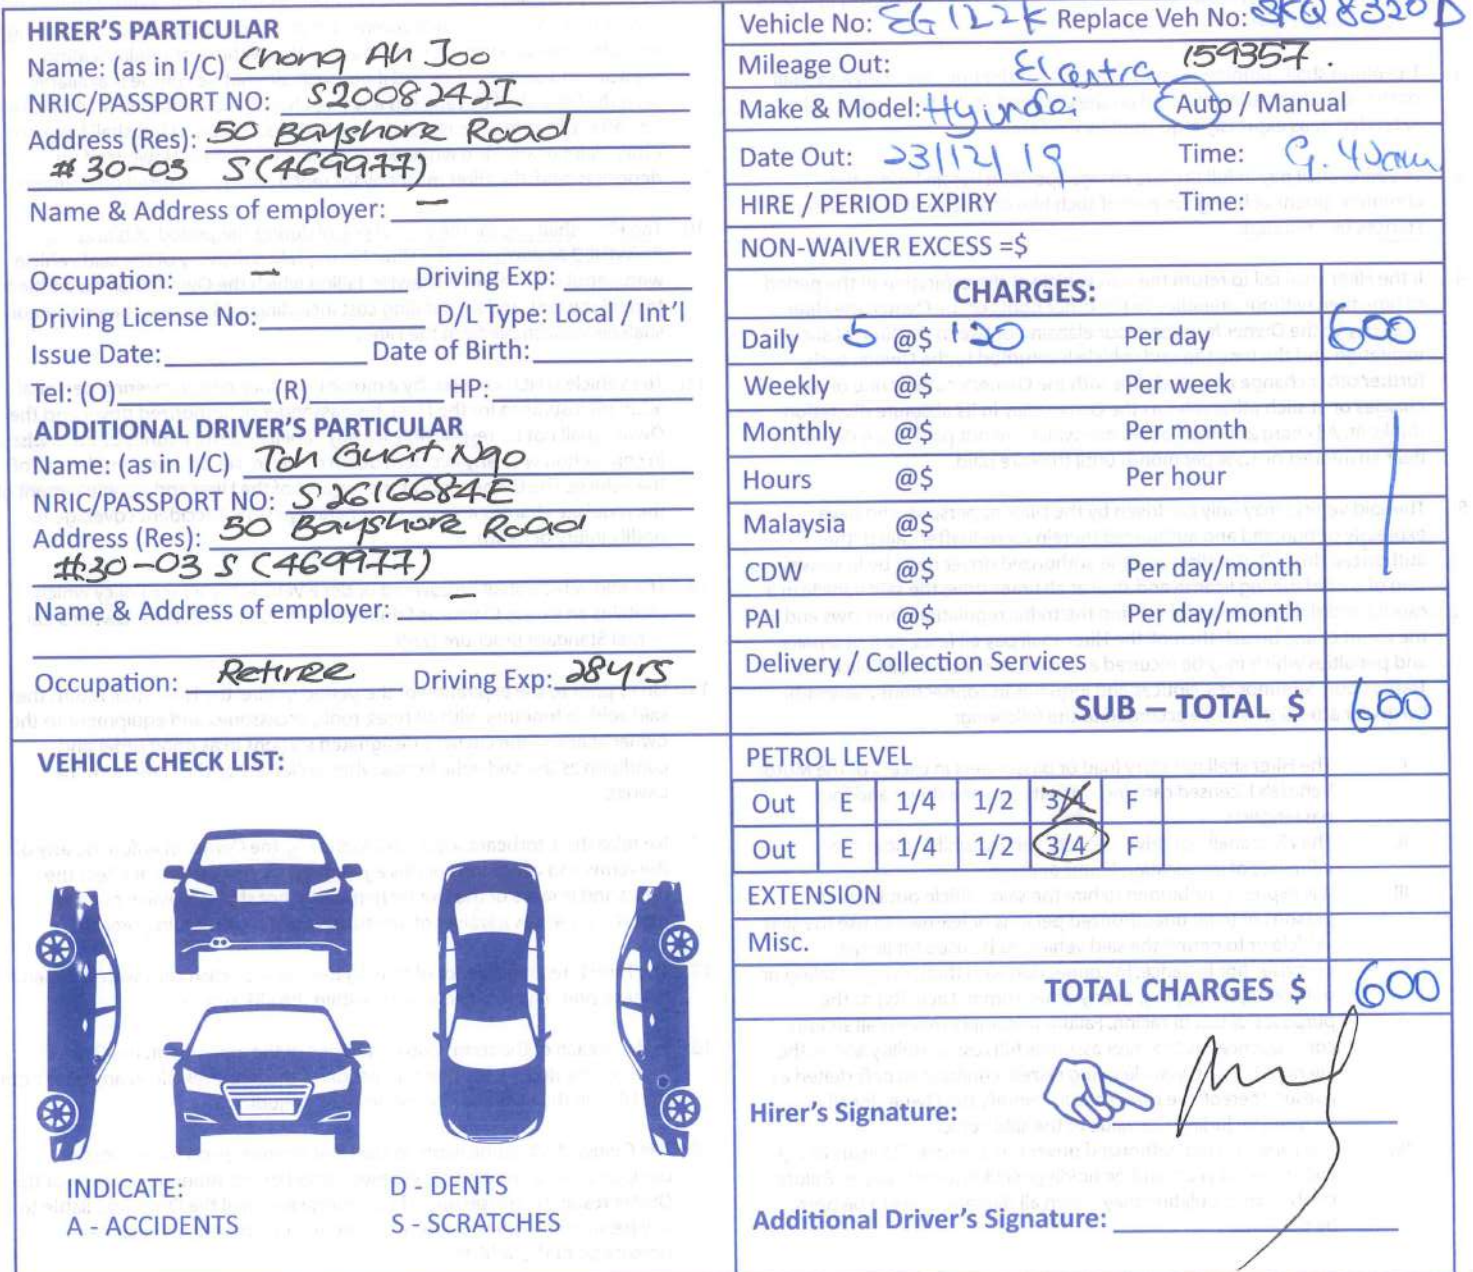 HIRER'S PARTICULAR
Name: (as in I/C) Chong Ah Joo
NRIC/PASSPORT NO: S2008242I
Address (Res): 50 Bayshore Road
#30-03 S(469977)
Name & Address of employer: —
Occupation: — Driving Exp:
Driving License No: D/L Type: Local / Int'l
Issue Date: Date of Birth:
Tel: (O) (R) HP:
ADDITIONAL DRIVER'S PARTICULAR
Name: (as in I/C) Toh Guat Ngo
NRIC/PASSPORT NO: S2616684E
Address (Res): 50 Bayshore Road
#30-03 S (469977)
Name & Address of employer: —
Occupation: Retiree Driving Exp: 28yrs
VEHICLE CHECK LIST:
INDICATE: D - DENTS
A - ACCIDENTS S - SCRATCHES
Vehicle No: EG122K Replace Veh No: SKQ8320D
Mileage Out: 159357.
Elantra
Make & Model: Hyundai Auto / Manual
Date Out: 23/12/19 Time: 9.40am
HIRE / PERIOD EXPIRY Time:
NON-WAIVER EXCESS =$
CHARGES:
Daily 5 @$ 120 Per day 600
Weekly @$ Per week
Monthly @$ Per month
Hours @$ Per hour
Malaysia @$
CDW @$ Per day/month
PAI @$ Per day/month
Delivery / Collection Services
SUB – TOTAL $ 600
PETROL LEVEL
Out E 1/4 1/2 3/4 F
Out E 1/4 1/2 3/4 F
EXTENSION
Misc.
TOTAL CHARGES $ 600
Hirer's Signature:
Additional Driver's Signature: